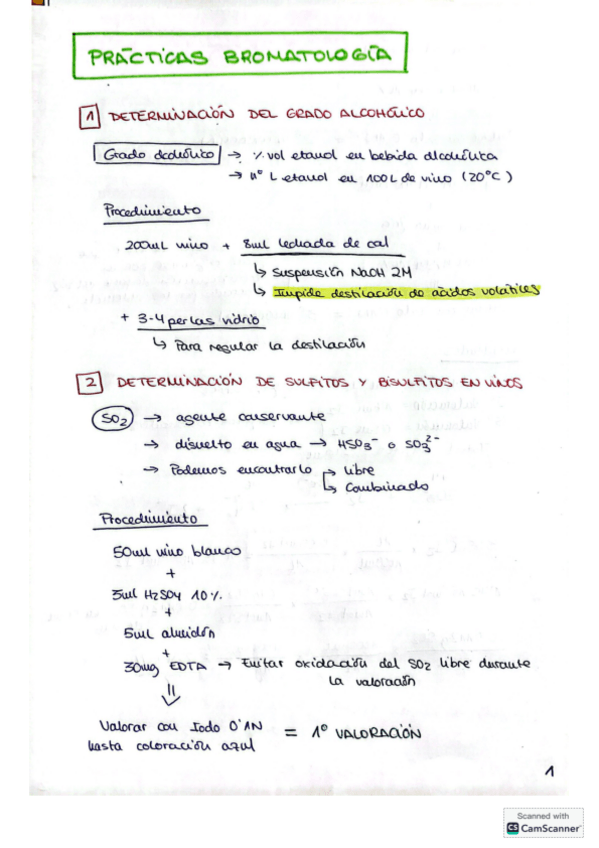 PRÁCTICAS BROMATOLOGÍA
1 DETERMINACIÓN DEL GRADO ALCOHÓLICO
Grado alcohólico → % vol etanol en bebida alcohólica
→ nº L etanol en 100L de vino (20°C)
Procedimiento
200mL vino + 8mL lechada de cal
↳ Suspensión NaOH 2M
↳ Impide destilación de ácidos volátiles
+ 3-4 perlas vidrio
↳ Para regular la destilación
2 DETERMINACIÓN DE SULFITOS Y BISULFITOS EN VINOS
SO2 → agente conservante
→ disuelto en agua → HSO3⁻ o SO3²⁻
→ Podemos encontrarlo → libre
↳ Combinado
Procedimiento
50ml vino blanco
+
5ml H2SO4 10%
+
5ml almidón
+
30mg EDTA → Evitar oxidación del SO2 libre durante
la valoración
⇓
Valorar con Iodo 0'1N = 1º VALORACIÓN
hasta coloración azul
1
Scanned with
CS CamScanner